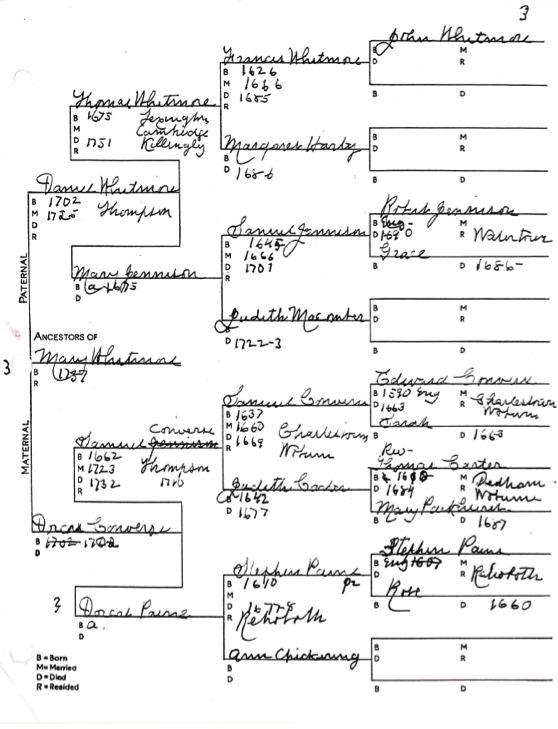 3
John Whitmore
B M
D R
B D
Francis Whitmore
B 1626
M 1666
D 1685
R
Thomas Whitmore
B 1675 Lexington
M Cambridge
D 1751 Killingly
R
B M
D R
B D
Margaret Harty
B
D 1686
Daniel Whitmore
B 1702
M 1725 Thompson
D
R
Robert Jennison
B Eng M
D 1690 R Watertown
Grace
B D 1686
Samuel Jennison
B 1645
M 1666
D 1701
R
Mary Jennison
B a 1675
D
B M
D R
B D
Judith Macomber
B
D 1722-3
PATERNAL
ANCESTORS OF
3 Mary Whitmore
B 1737
R
MATERNAL
Edward Convers
B 1590 Eng M Charlestown
D 1663 R Woburn
Sarah
B D 1663
Samuel Convers
B 1637
M 1660 Charlestown
D 1669 Woburn
R
Converse
Samuel Jennison
B 1662
M 1723 Thompson
D 1732 1710
R
Rev-
Thomas Carter
B 1610 M Dedham
D 1684 R Woburn
Mary Parkhurst
B D 1687
Judith Carter
B 1642
D 1677
Dorcas Converse
B 1702 1702
D
Stephen Paine
B Eng 1607 M
D R Rehoboth
Rose
B D 1660
Stephen Paine
B 1640
M
D 1677-8
R Rehoboth
3 Dorcas Paine
B a.
D
B M
D R
B D
Ann Chickering
B
D
B = Born
M = Married
D = Died
R = Resided